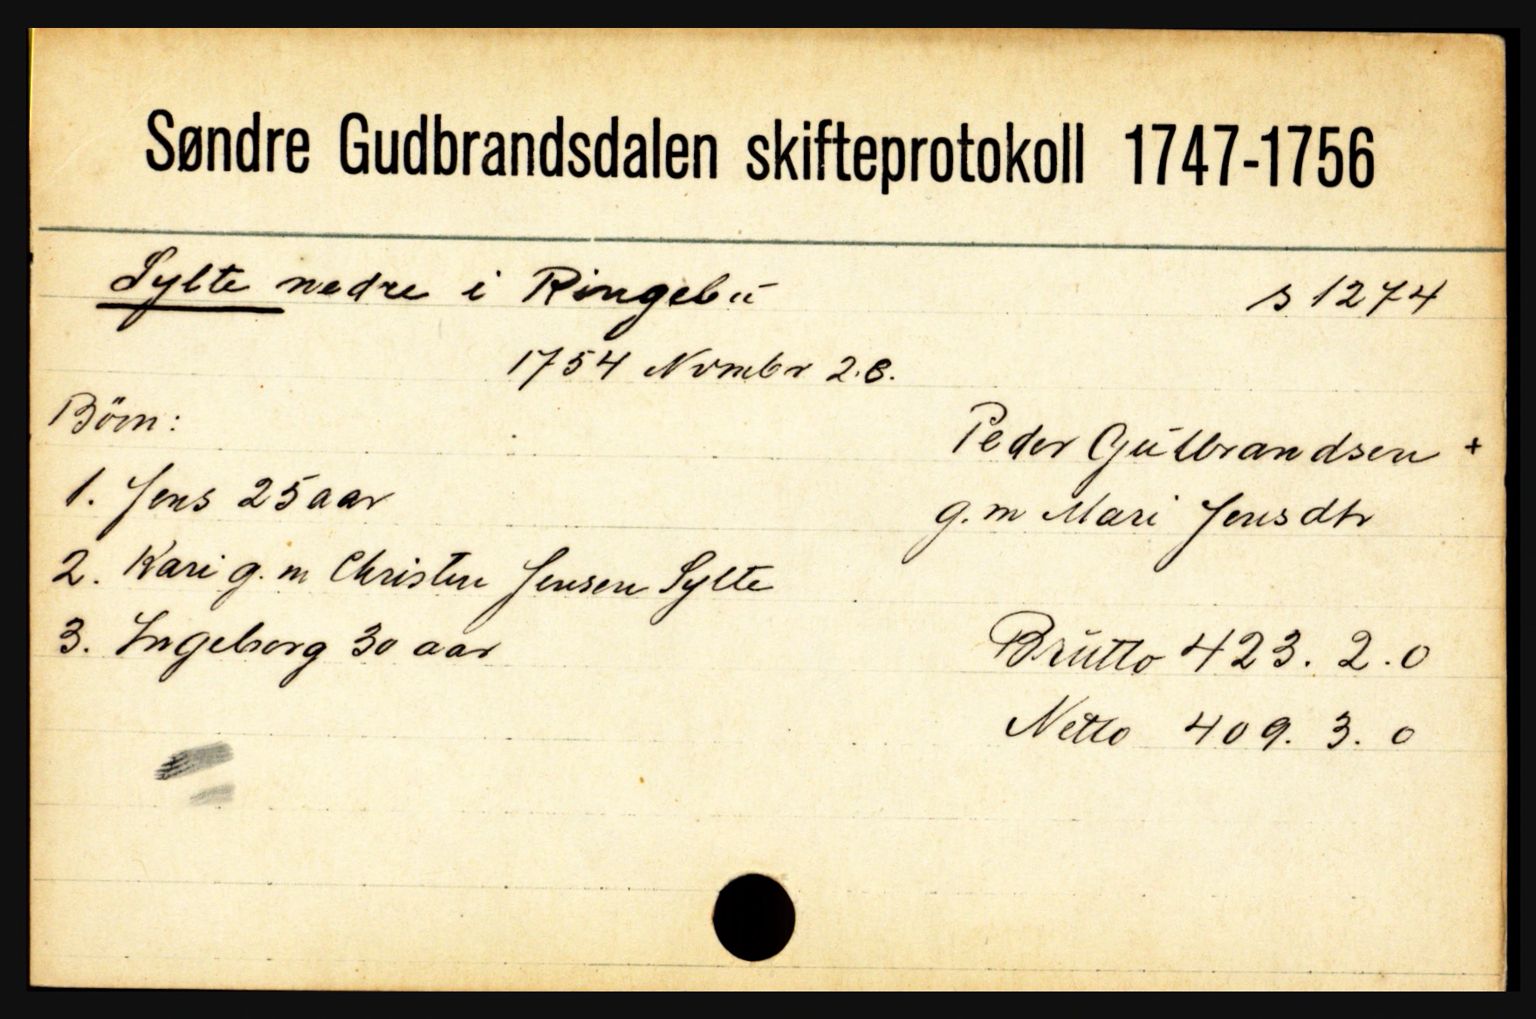 Søndre Gudbrandsdalen skifteprotokoll 1747-1756
Sylte nedre i Ringebu s 1274
1754 Novmbr 28.
Börn:
Peder Gulbrandsen +
1. Jens 25 aar
g. m Mari Jensdtr
2. Kari g. m Christen Jensen Sylte
3. Ingeborg 30 aar
Brutto 423. 2. 0
Netto 409. 3. 0